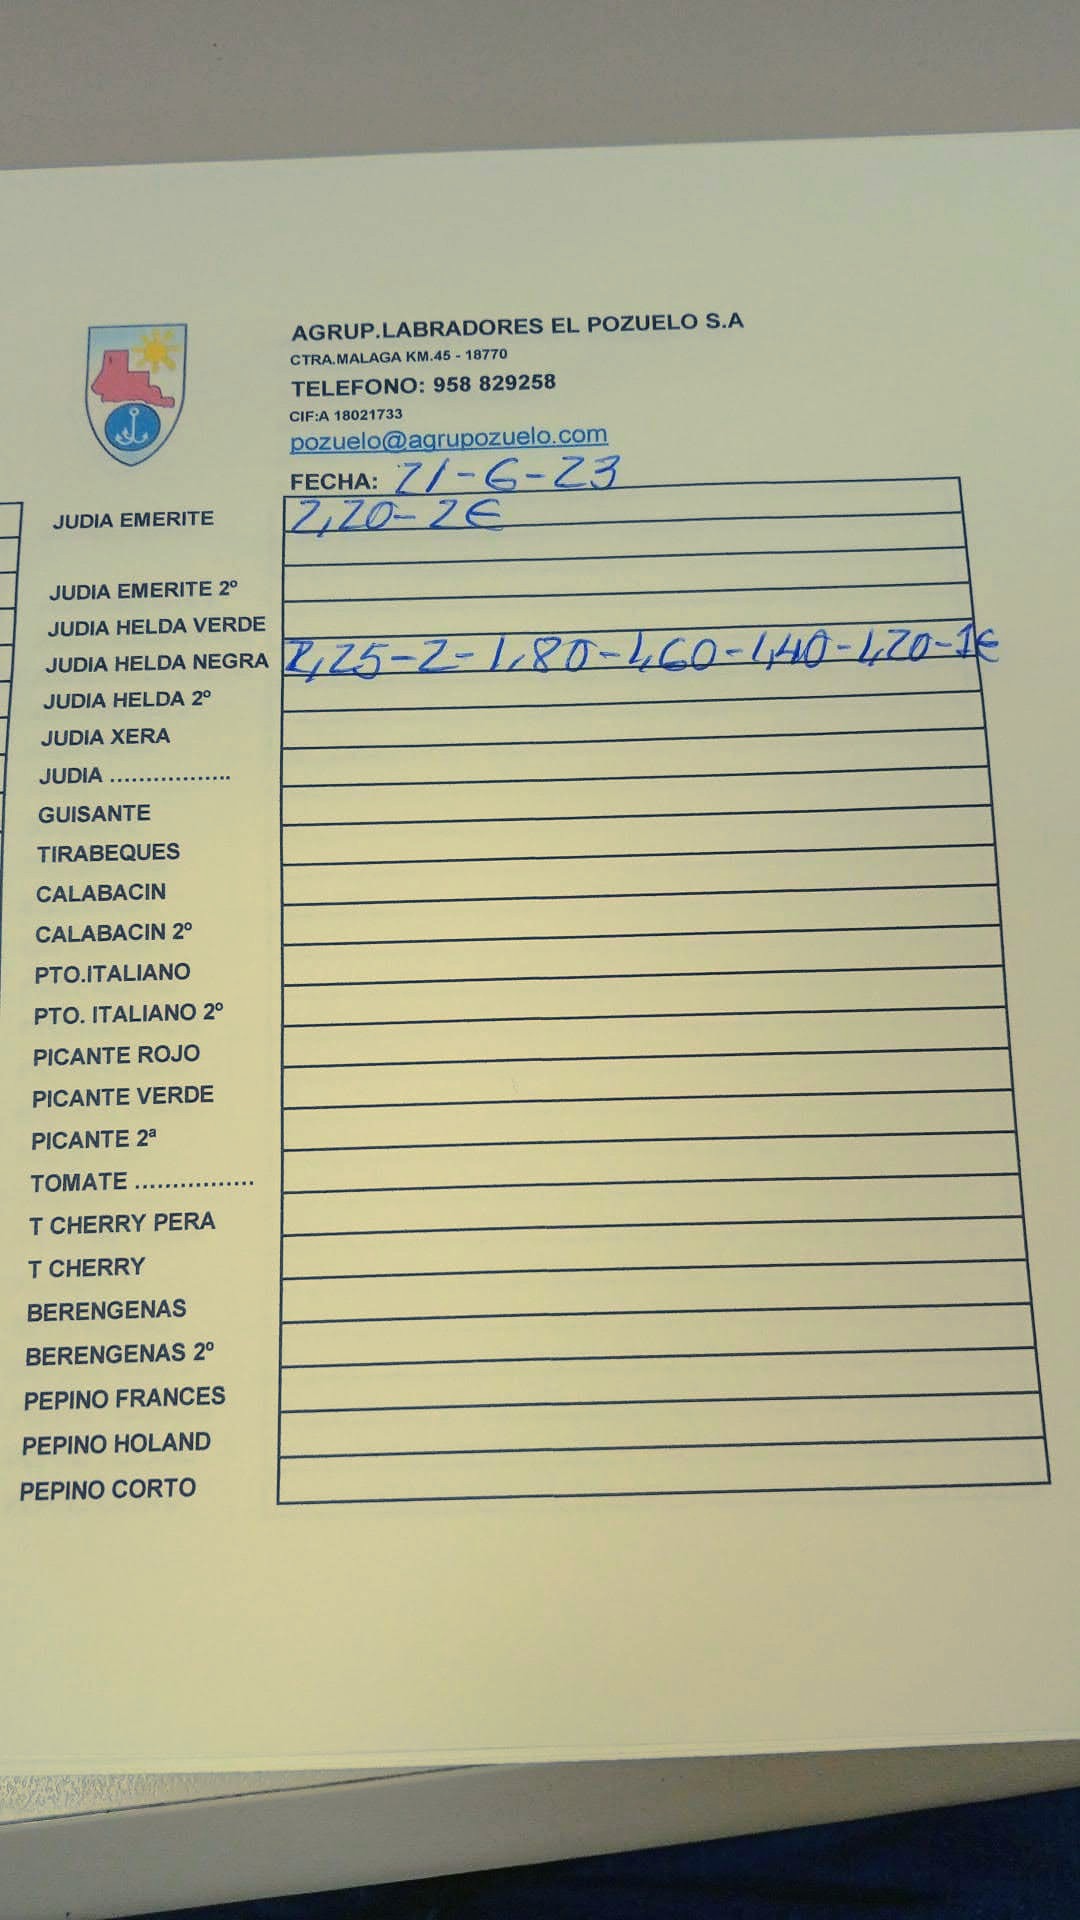 AGRUP.LABRADORES EL POZUELO S.A
CTRA.MALAGA KM.45 - 18770
TELEFONO: 958 829258
CIF:A 18021733
pozuelo@agrupozuelo.com
FECHA: 21-6-23
JUDIA EMERITE 2,20-2€
JUDIA EMERITE 2º
JUDIA HELDA VERDE
JUDIA HELDA NEGRA 2,25-2-1,80-1,60-1,40-1,20-1€
JUDIA HELDA 2º
JUDIA XERA
JUDIA .................
GUISANTE
TIRABEQUES
CALABACIN
CALABACIN 2º
PTO.ITALIANO
PTO. ITALIANO 2º
PICANTE ROJO
PICANTE VERDE
PICANTE 2ª
TOMATE ................
T CHERRY PERA
T CHERRY
BERENGENAS
BERENGENAS 2º
PEPINO FRANCES
PEPINO HOLAND
PEPINO CORTO